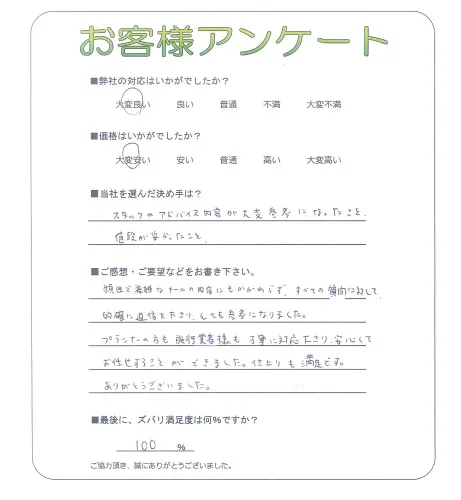 お客様アンケート
■弊社の対応はいかがでしたか？
大変良い 良い 普通 不満 大変不満
■価格はいかがでしたか？
大変安い 安い 普通 高い 大変高い
■当社を選んだ決め手は？
スタッフのアドバイス内容が大変参考になったこと、
値段が安かったこと、
■ご感想・ご要望などをお書き下さい。
頻回で複雑なメールの内容にもかかわらず、すべての質問に対して、
的確に返信を下さり、とても参考になりました。
プランナーの方も施行業者様も丁寧に対応下さり、安心して
お任せすることができました。仕上りも満足です。
ありがとうございました。
■最後に、ズバリ満足度は何%ですか？
100 %
ご協力頂き、誠にありがとうございました。